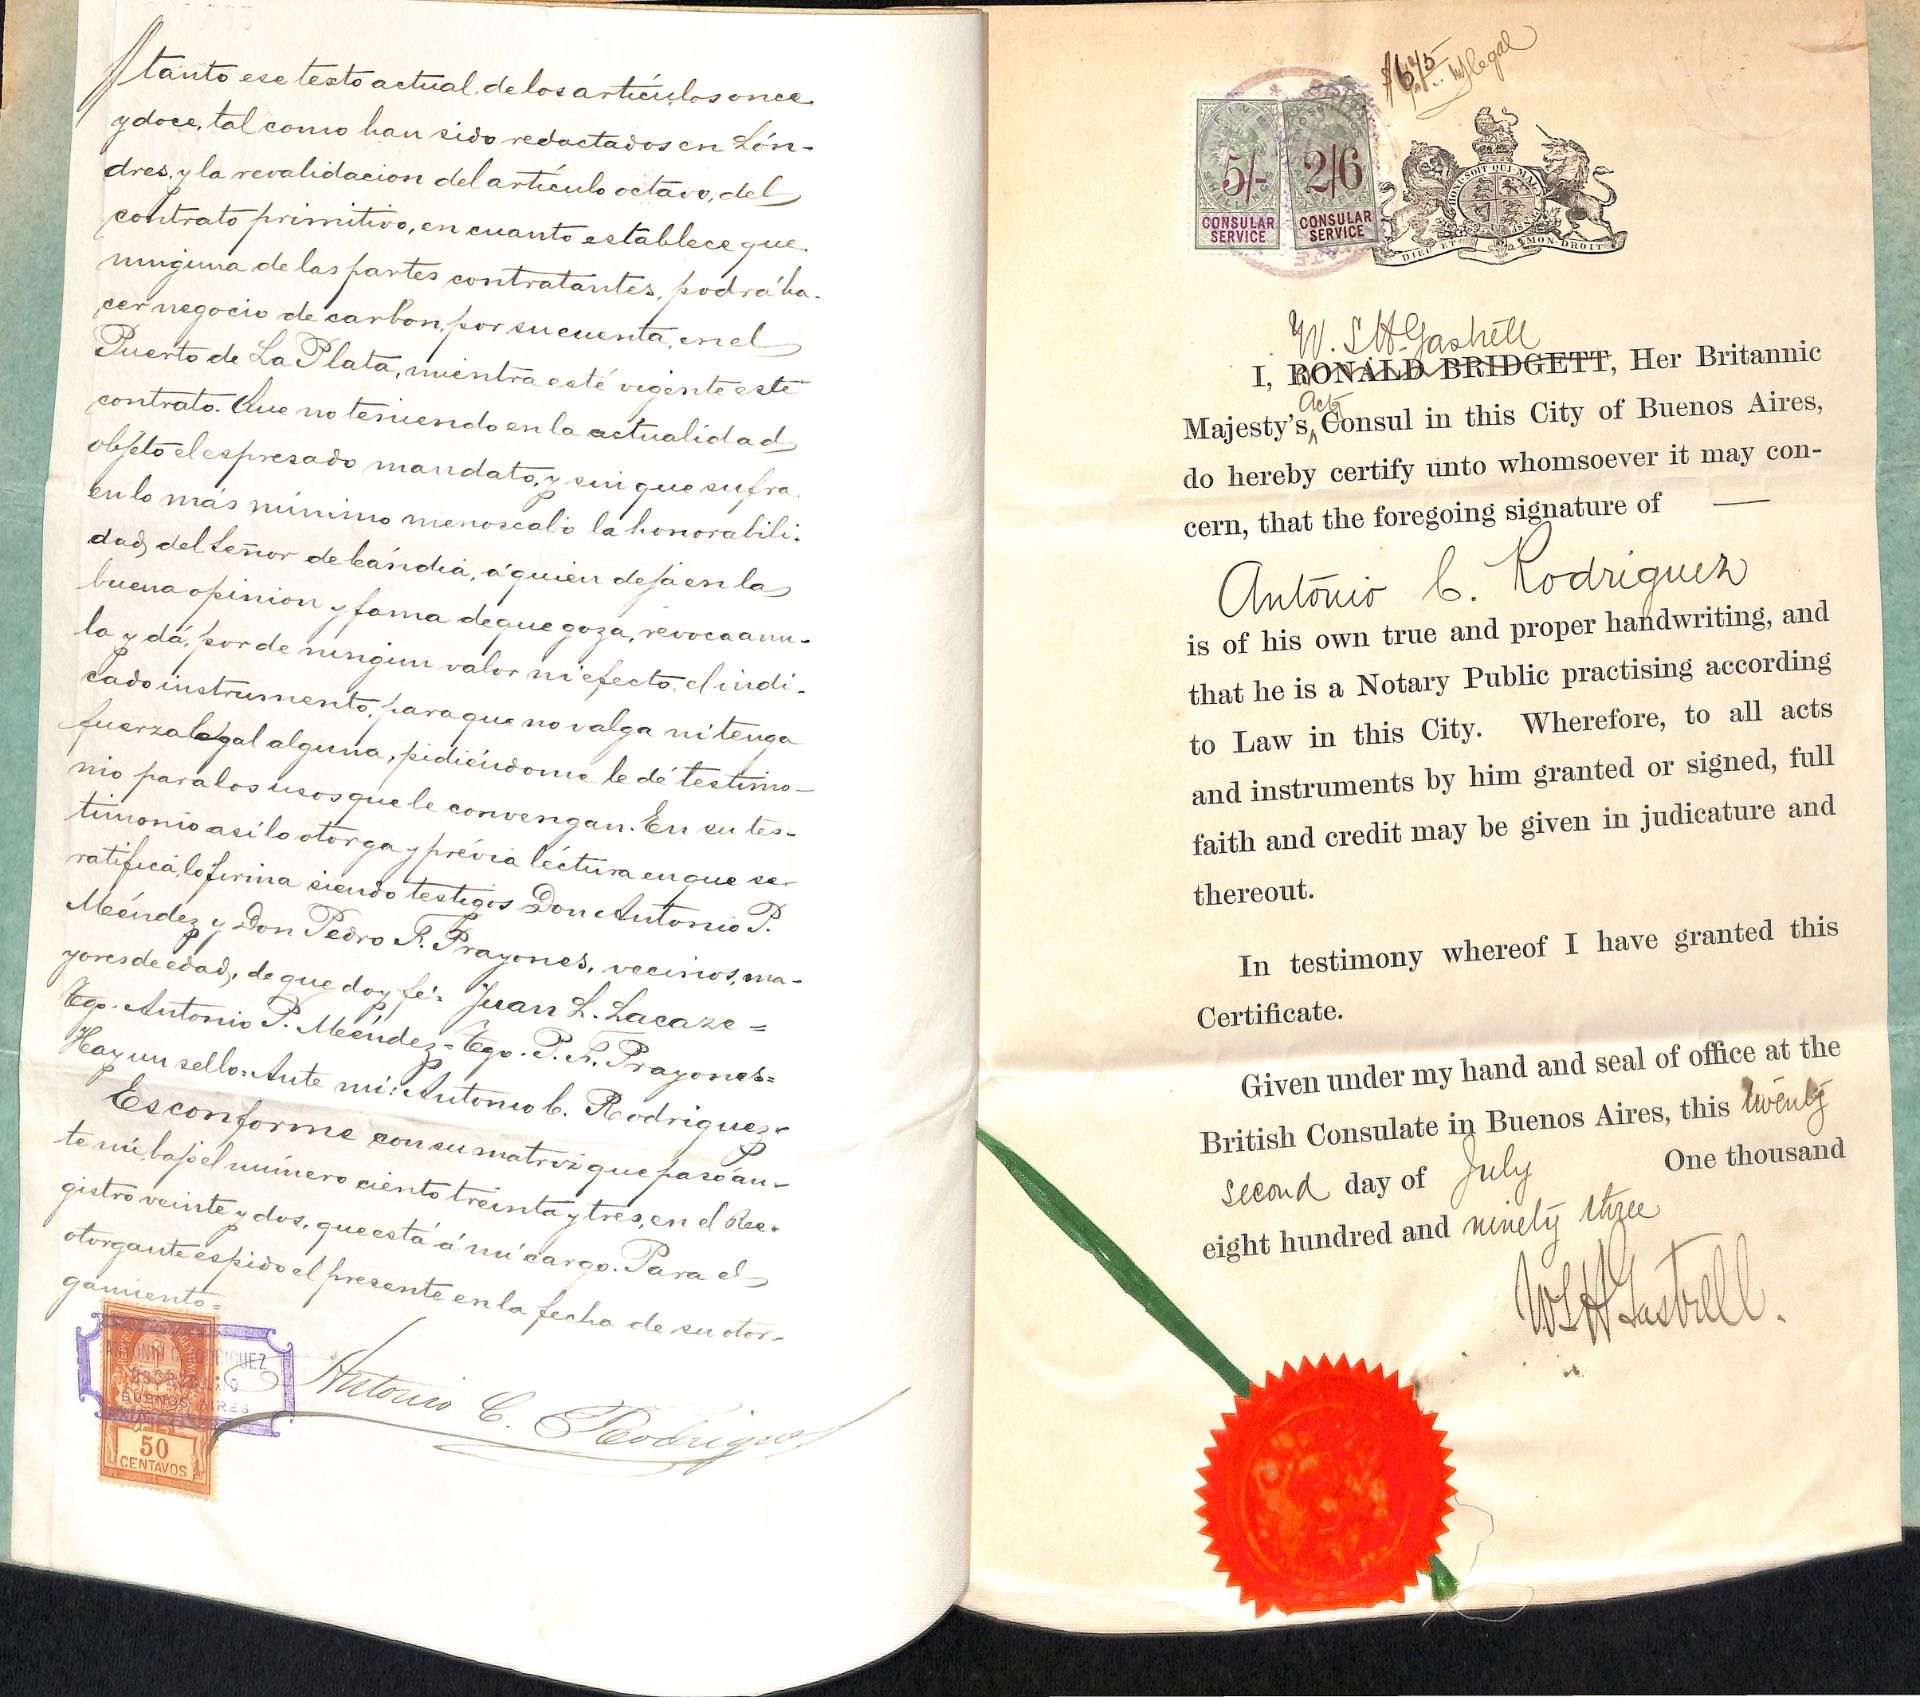 tanto ese testo actual, de los artículos once
y doce, tal como han sido redactados en Lón-
dres, y la revalidacion del artículo octavo, del
contrato primitivo, en cuanto establece que
ninguna de las partes contratantes, podrá ha-
cer negocio de carbon, por su cuenta, en el
Puerto de La Plata, mientra esté vigente este
contrato. Que no teniendo en la actualidad
objeto el espresado mandato, y sin que sufra
en lo más mínimo menoscabo la honorabili-
dad, del Señor de Cándia, á quien deja en la
buena opinion y fama de que goza, revoca anu-
la y dá, por de ningun valor ni efecto, el indi-
cado instrumento, para que no valga ni tenga
fuerza legal alguna, pidiéndome le dé testimo-
nio para los usos que le convengan. En su tes-
timonio asi lo otorga y prévia léctura en que se
ratifica, lo firma siendo testigos Don Antonio P.
Méndez y Don Pedro F. Prayones, vecinos, ma-
yores de edad, de que doy fé= Juan L. Lacaze=
Tgo. Antonio P. Méndez= Tgo. P. F. Prayones=
Hay un sello= Ante mi: Antonio C. Rodriguez=
Es conforme con su matriz que pasó án-
te mi, bajo el número ciento treinta y tres, en el Re-
gistro veinte y dos, que está á mi cargo. Para el
otorgante espido el presente en la fecha de su otor-
gamiento=
ANTONIO C. RODRIGUEZ
ESCRIBANO
BUENOS AIRES
50
CENTAVOS
Antonio C. Rodriguez
FIVE SHILLINGS
5/-
CONSULAR
SERVICE
2/6
CONSULAR
SERVICE
HONI SOIT QUI MAL Y
DIEU ET MON DROIT
W. S. H. Gastrell
I, RONALD BRIDGETT, Her Britannic
Actg
Majesty's Consul in this City of Buenos Aires,
do hereby certify unto whomsoever it may con-
cern, that the foregoing signature of —
Antonio C. Rodriguez
is of his own true and proper handwriting, and
that he is a Notary Public practising according
to Law in this City. Wherefore, to all acts
and instruments by him granted or signed, full
faith and credit may be given in judicature and
thereout.
In testimony whereof I have granted this
Certificate.
Given under my hand and seal of office at the
British Consulate in Buenos Aires, this twenty
second day of July One thousand
eight hundred and ninety three
W S H Gastrell.